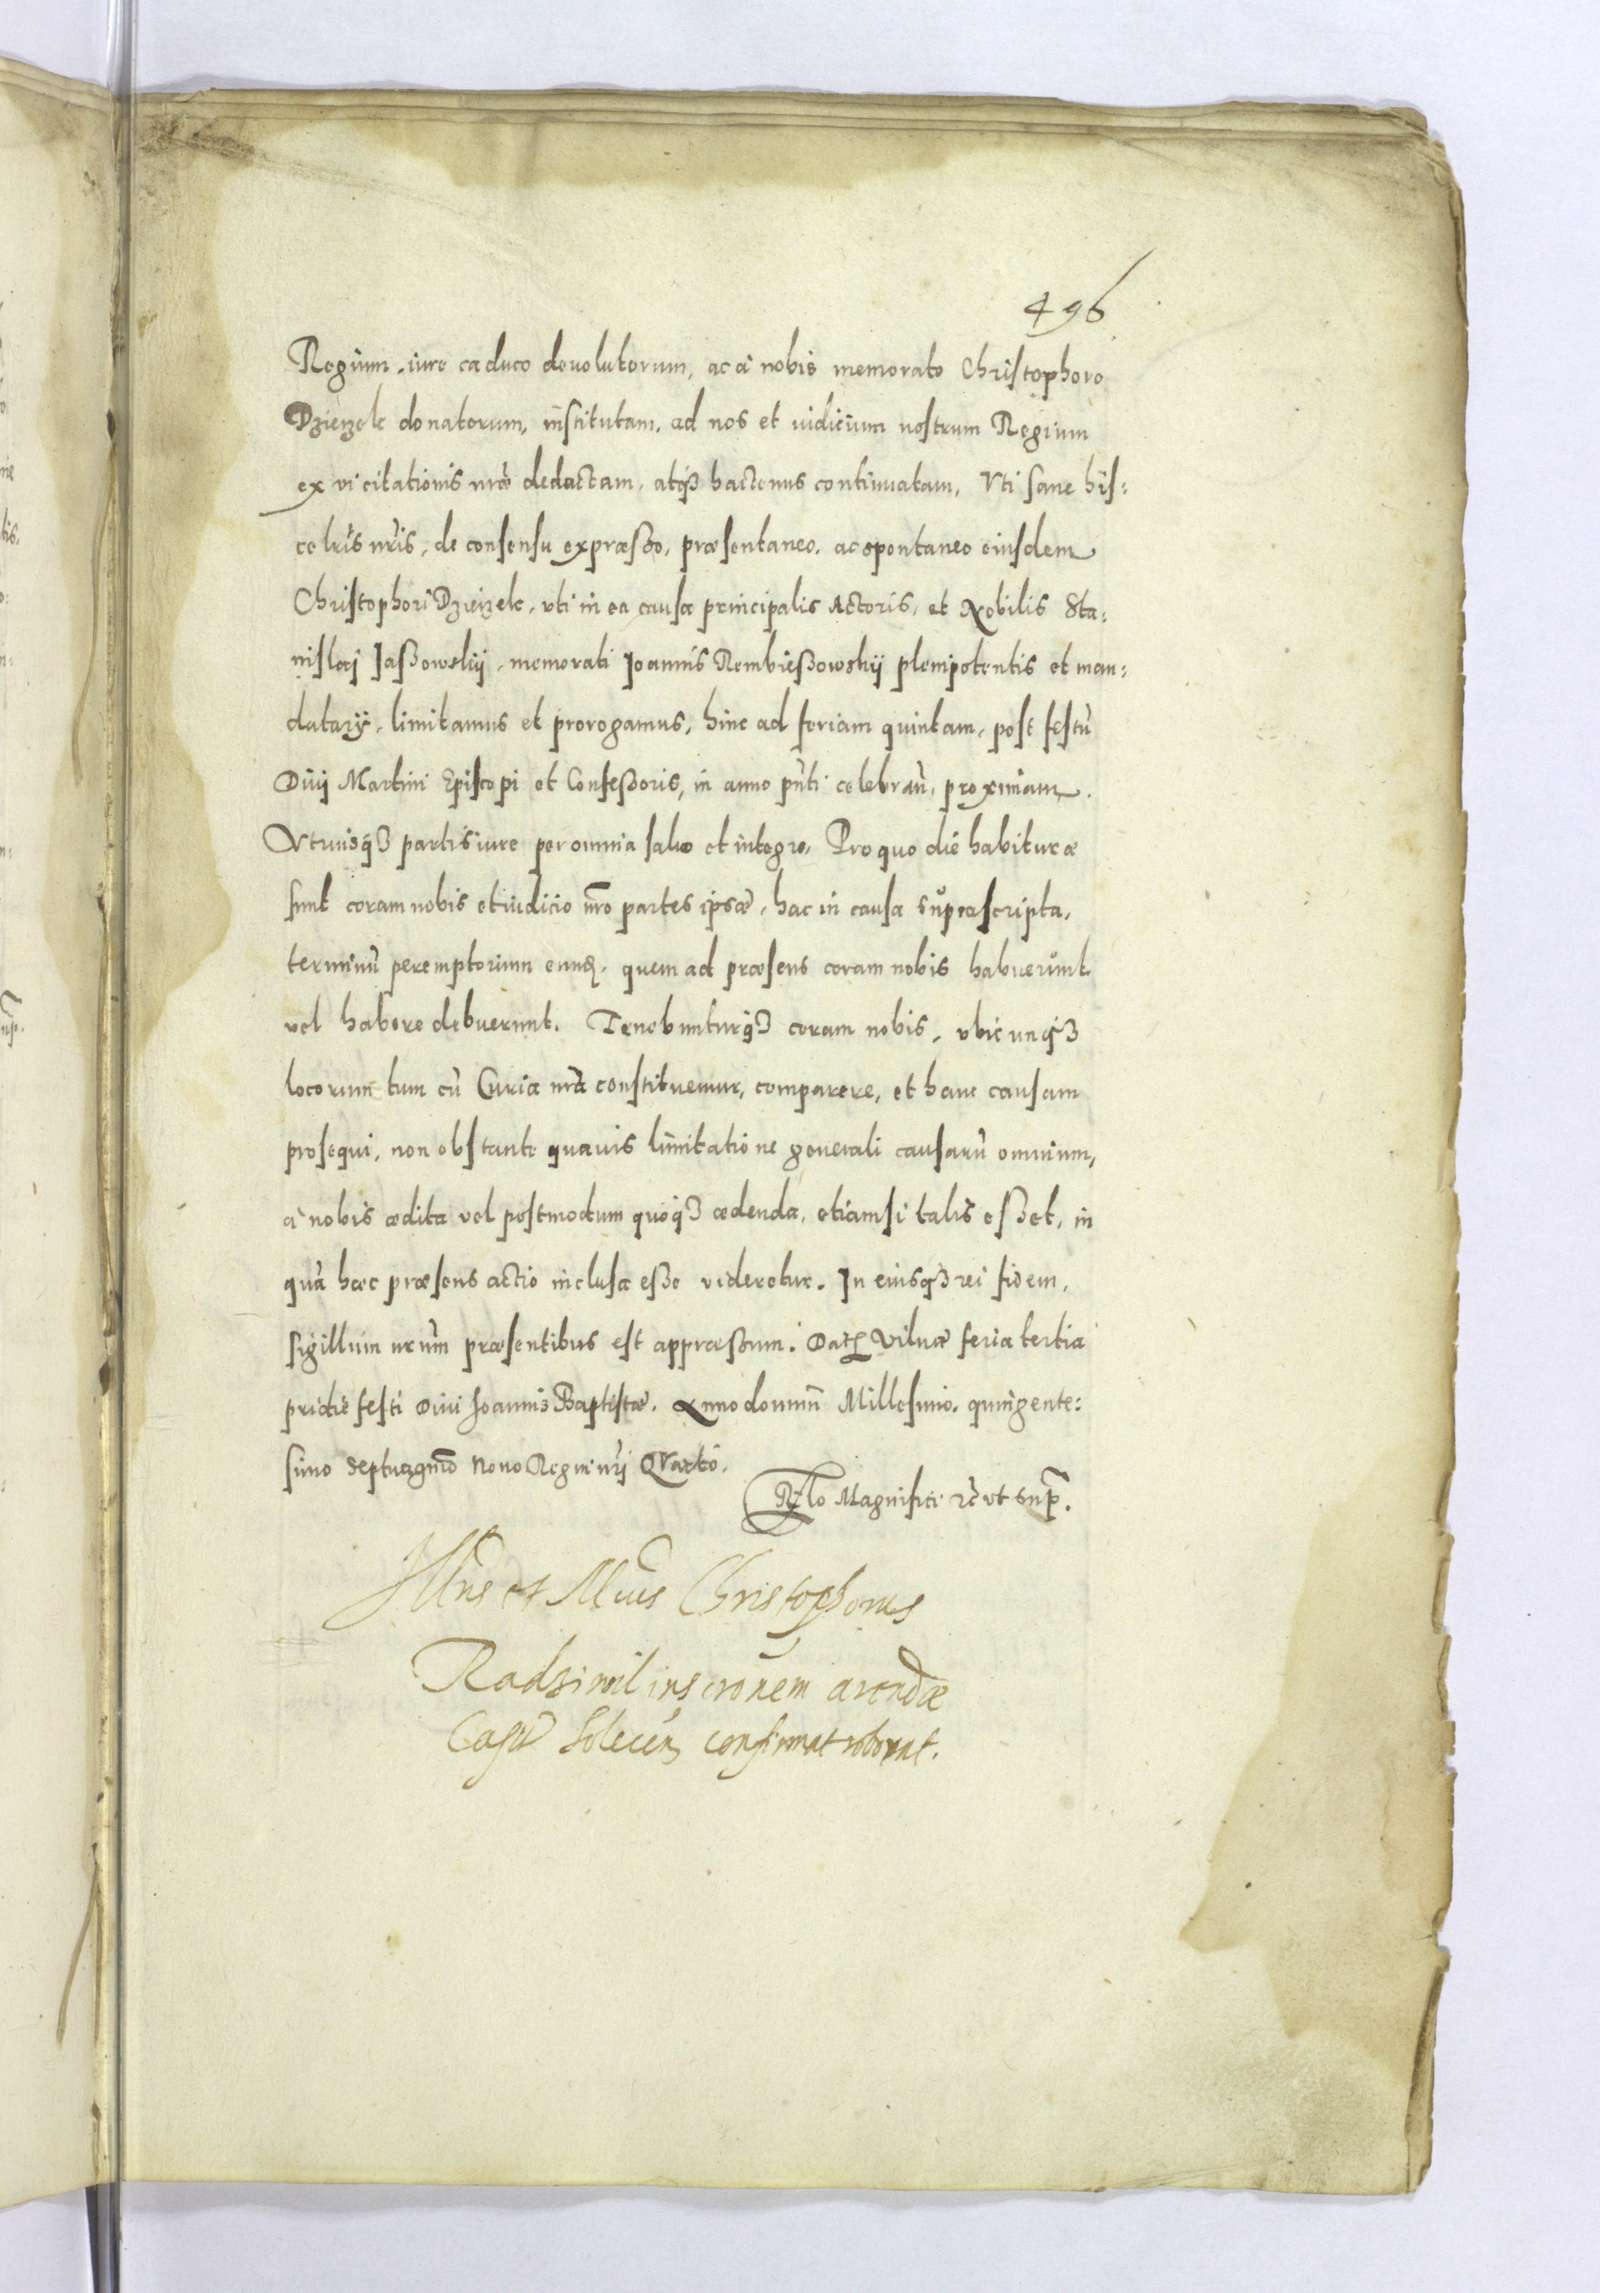 496
Regium, iure caduco deuolutorum, ac à nobis memorato Christophoro
Dzierzek donatorum, institutam, ad nos et iudicium nostrum Regium
ex vi citationis nr̃æ dedactam, atq3 hactenus continuatam, Vti sane his:
ce lr̃is nr̃is, de consensu expræsso, præsentaneo, ac spontaneo eiusdem
Christophori Dzierzek, vti in ea causa principalis Actoris, et Nobilis Sta:
nislaj Jaßowskij, memorati Joannis Rembießowskij plenipotentis et man:
datarij, limitamus et prorogamus, hinc ad feriam quintam, post festũ
Diuj Martini Episcopi et Confessoris, in anno pñti celebrañ, proximam.
Vtriusq3 partis iure per omnia saluo et integro, Pro quo die habituræ
sunt coram nobis et iudicio nr̃o partes ipsæ, hac in causa suprascripta,
terminũ peremptorium eund, quem ad præsens coram nobis habuerunt
vel habere debuerunt. Tenebunturq3 coram nobis, vbicunq3
locorum tum cũ Curia nr̃a constituemur, comparere, et hanc causam
prosequi, non obstante quauis limitatione generali causarũ omnium,
à nobis ædita vel postmodum quoq3 ædenda, etiamsi talis esset, in
qua hæc præsens actio inclusa esse videretur. In eiusq3 rei fidem,
sigillum nr̃um præsentibus est appræssum. Dat Vilnæ feria tertia
pridie festi Diui Joannis Baptistæ. Anno domini Millesimo, quingente:
simo septuagmo Nono Regni nr̃j Quarto.
Rlo Magnifici rc vt sup.
Illris et Mcus Christophorus
Radziwil inscr̃onem arendæ
Capit Solecen confirmat roborat.